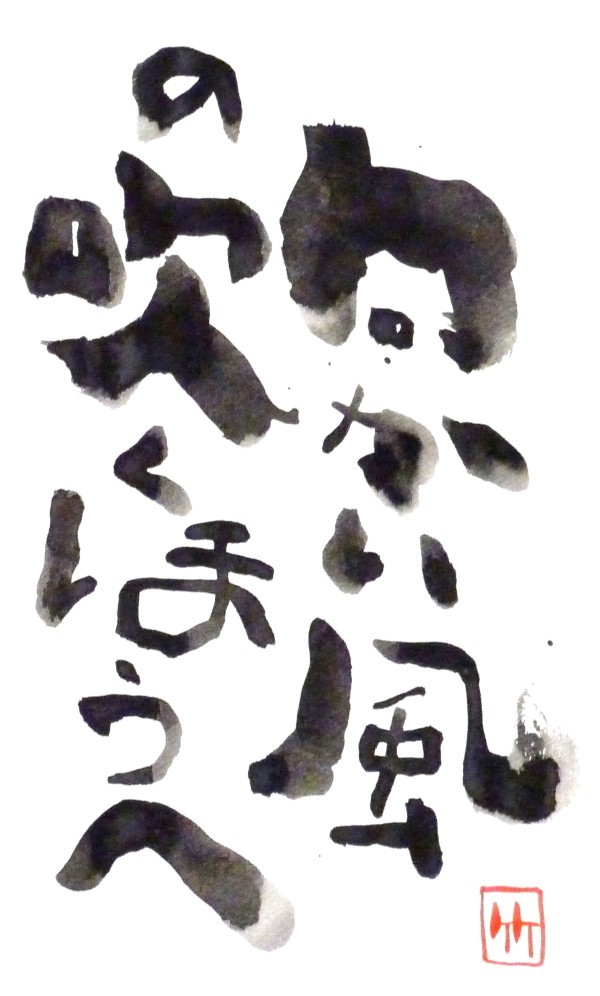 向かい風
の吹くほうへ
竹